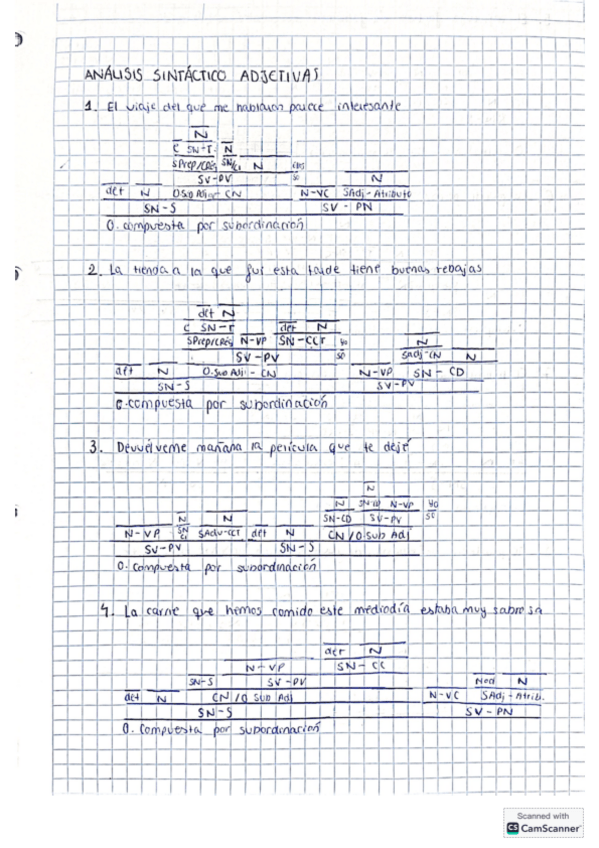 ANÁLISIS SINTÁCTICO ADJETIVAS
1. El viaje del que me hablaron parece interesante
N
C SN-T. N
SPrep/CRég SN/CI N ellos
SV-PV SO N
det N O.Sub Adj - CN N-VC SAdj-Atributo
SN-S SV-PN
O. compuesta por subordinación
2. La tienda a la que fui esta tarde tiene buenas rebajas
det N
C SN-T det N N
SPrep/CRég N-VP SN-CCT yo SAdj-CN N
SV-PV SO
det N O.Sub Adj - CN N-VP SN-CD
SN-S SV-PV
O. compuesta por subordinación
3. Devuélveme mañana la película que te dejé
N
N N N SN-CI N-VP yo
SN SN-CD SV-PV SO
N-VP CI SAdv-CCT det N CN/O.Sub Adj
SV-PV SN-S
O. Compuesta por subordinación
4. La carne que hemos comido este mediodía estaba muy sabrosa
det N
N-VP SN-CC
SN-S SV-PV Mod N
det N CN/O Sub Adj N-VC SAdj-Atrib.
SN-S SV-PN
O. Compuesta por subordinación
Scanned with
CS CamScanner